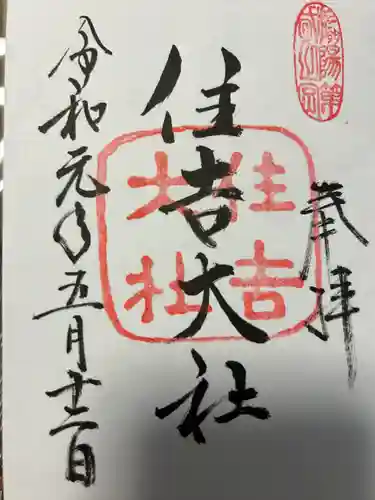 奉拝
住吉大社
住吉大社
令和元年五月十二日